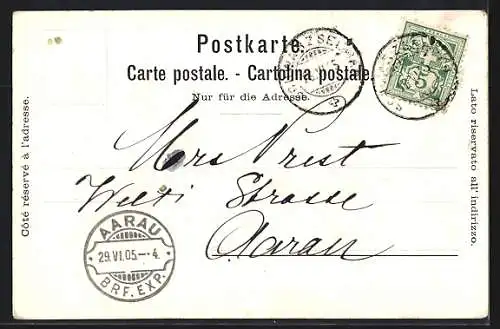 Postkarte.
Carte postale. - Cartolina postale.
Nur für die Adresse.
Côté réservé à l'adresse.
Lato riservato all' indirizzo.
Mrs Prest
Welti Strasse
Aarau
AARAU
29.VI.05.--4.
BRF. EXP.